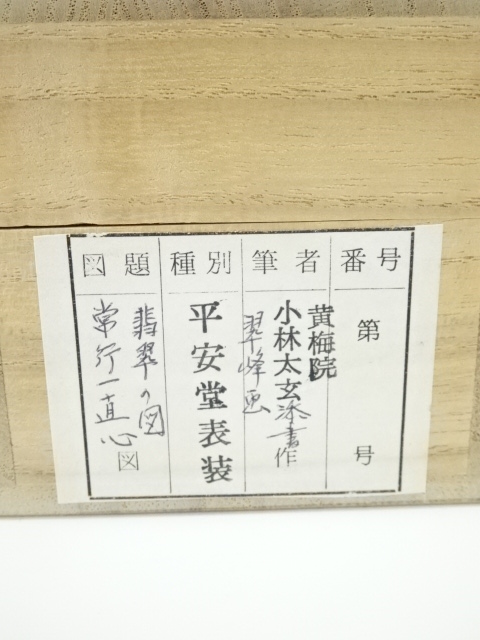 番号
第 号
筆者
黄梅院
小林太玄添書作
翠峰画
種別
平安堂表装
図題
翡翠の図
常行一直心図